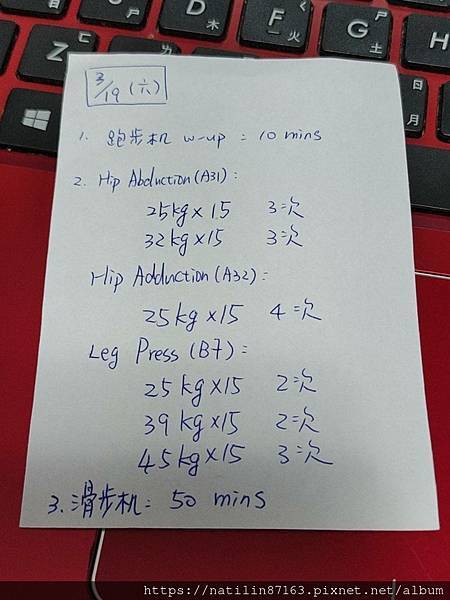 3/19 (六)
1. 跑步机 w-up = 10 mins
2. Hip Abduction (A31) :
25kg × 15 3次
32kg × 15 3次
Hip Adduction (A32) :
25kg × 15 4次
Leg Press (B7) :
25 kg × 15 2次
39 kg × 15 2次
45 kg × 15 3次
3. 滑步机 : 50 mins
https://natilin87163.pixnet.net/album